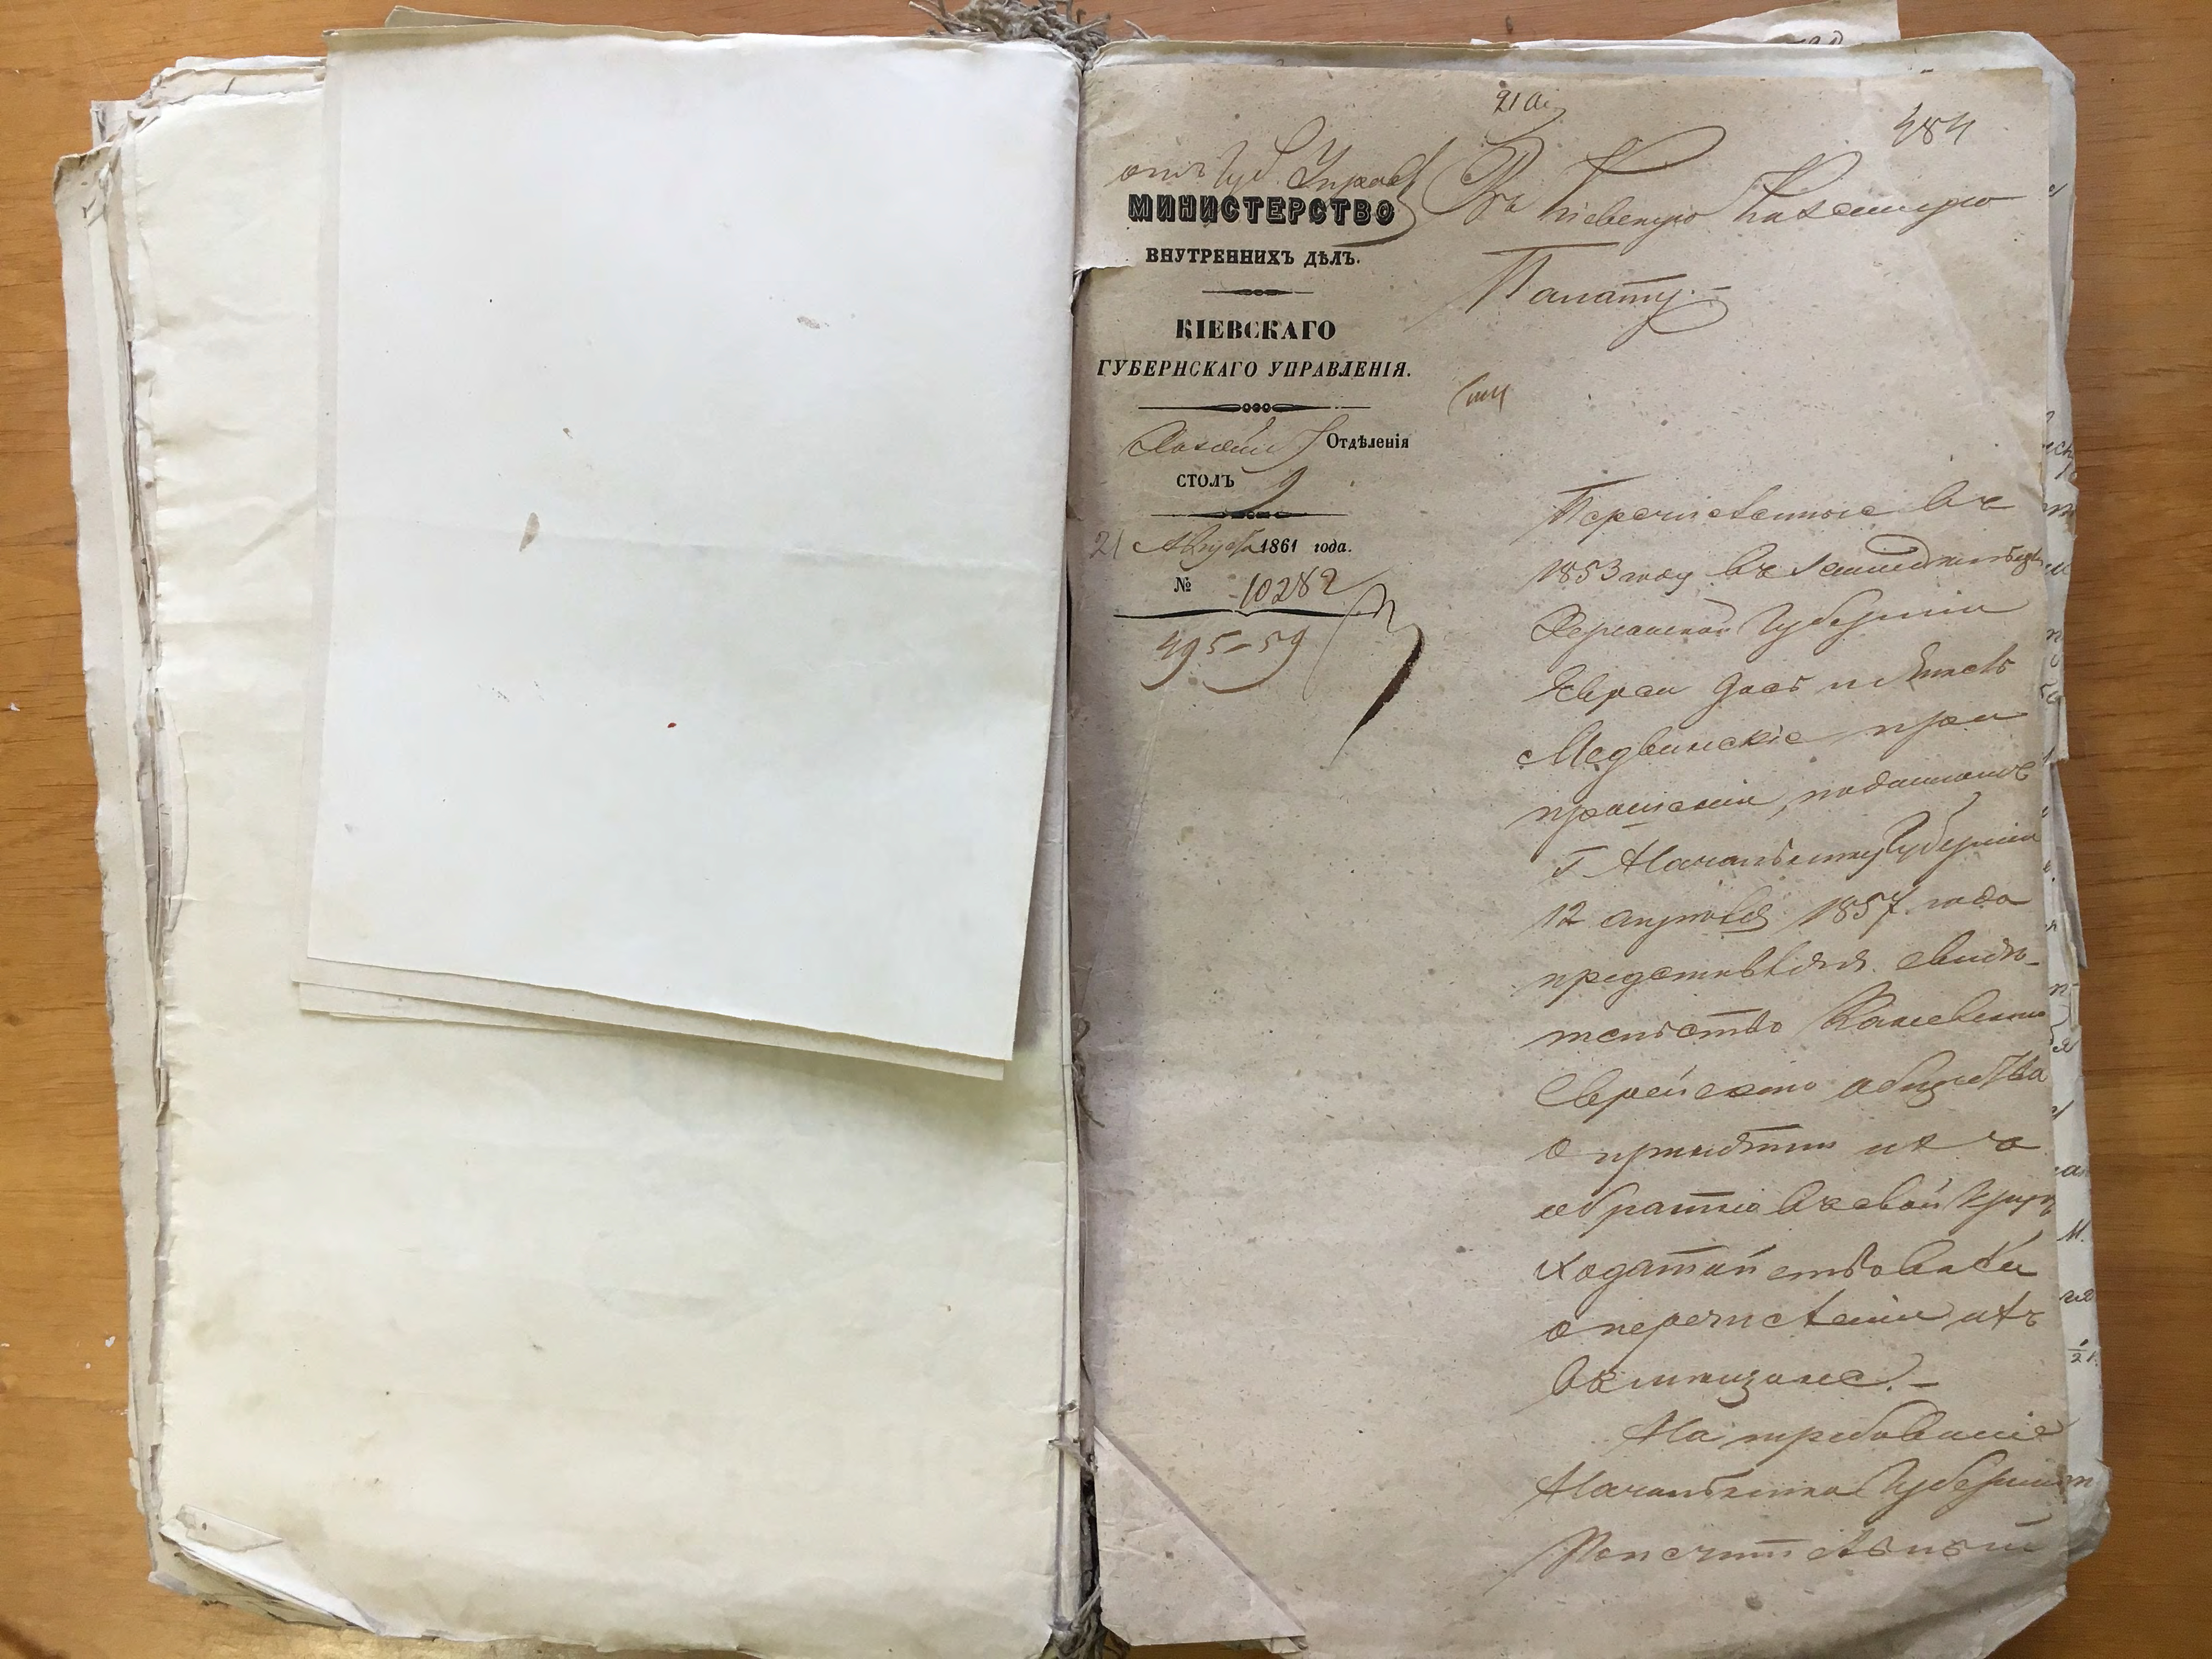 21 Авг
484
отъ Губ. Управ
МИНИСТЕРСТВО
ВНУТРЕННИХЪ ДѢЛЪ.
КІЕВСКАГО
ГУБЕРНСКАГО УПРАВЛЕНІЯ.
Отдѣленія
СТОЛЪ 2
21 Августа 1861 года.
№ 10282
495-59
Въ Кіевскую Казенную
Палату.-
Перечисленные въ
1853 году въ земледѣльцы
Херсонской Губерніи
Евреи
Медвинскіе при
прошеніи, поданномъ
Г Начальнику Губерніи
12 апрѣля 1857 года
представляя свидѣ-
тельство Каневскаго
Еврейскаго общества
о принятіи ихъ
обратно въ свой
ходатайствовали
о перечисленіи ихъ
въ мѣщане.-
На требованіе
Начальника Губерніи
Попечительный